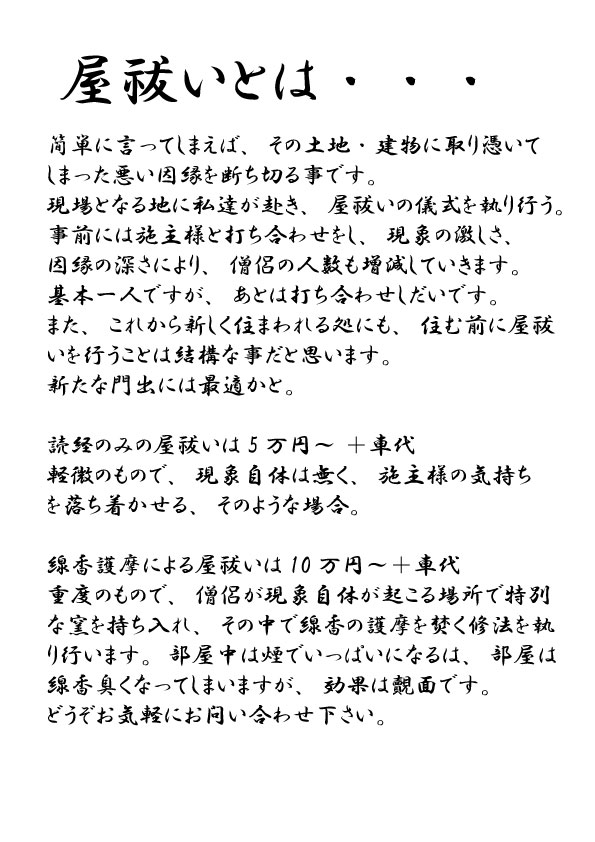 屋祓いとは・・・
简単に言ってしまえば、その土地・建物に取り憑いて
しまった悪い因縁を断ち切る事です。
現場となる地に私達が赴き、屋祓いの儀式を執り行う。
事前には施主様と打ち合わせをし、現象の激しさ、
因縁の深さにより、僧侶の人数も増減していきます。
基本一人ですが、あとは打ち合わせしだいです。
また、これから新しく住まわれる処にも、住む前に屋祓
いを行うことは結構な事だと思います。
新たな門出には最適かと。
読経のみの屋祓いは5万円〜 ＋車代
軽微のもので、現象自体は無く、施主様の気持ち
を落ち着かせる、そのような場合。
線香護摩による屋祓いは10万円〜＋車代
重度のもので、僧侶が現象自体が起こる場所で特別
な窯を持ち入れ、その中で線香の護摩を焚く修法を執
り行います。部屋中は煙でいっぱいになるは、部屋は
線香臭くなってしまいますが、効果は覿面です。
どうぞお気軽にお問い合わせ下さい。